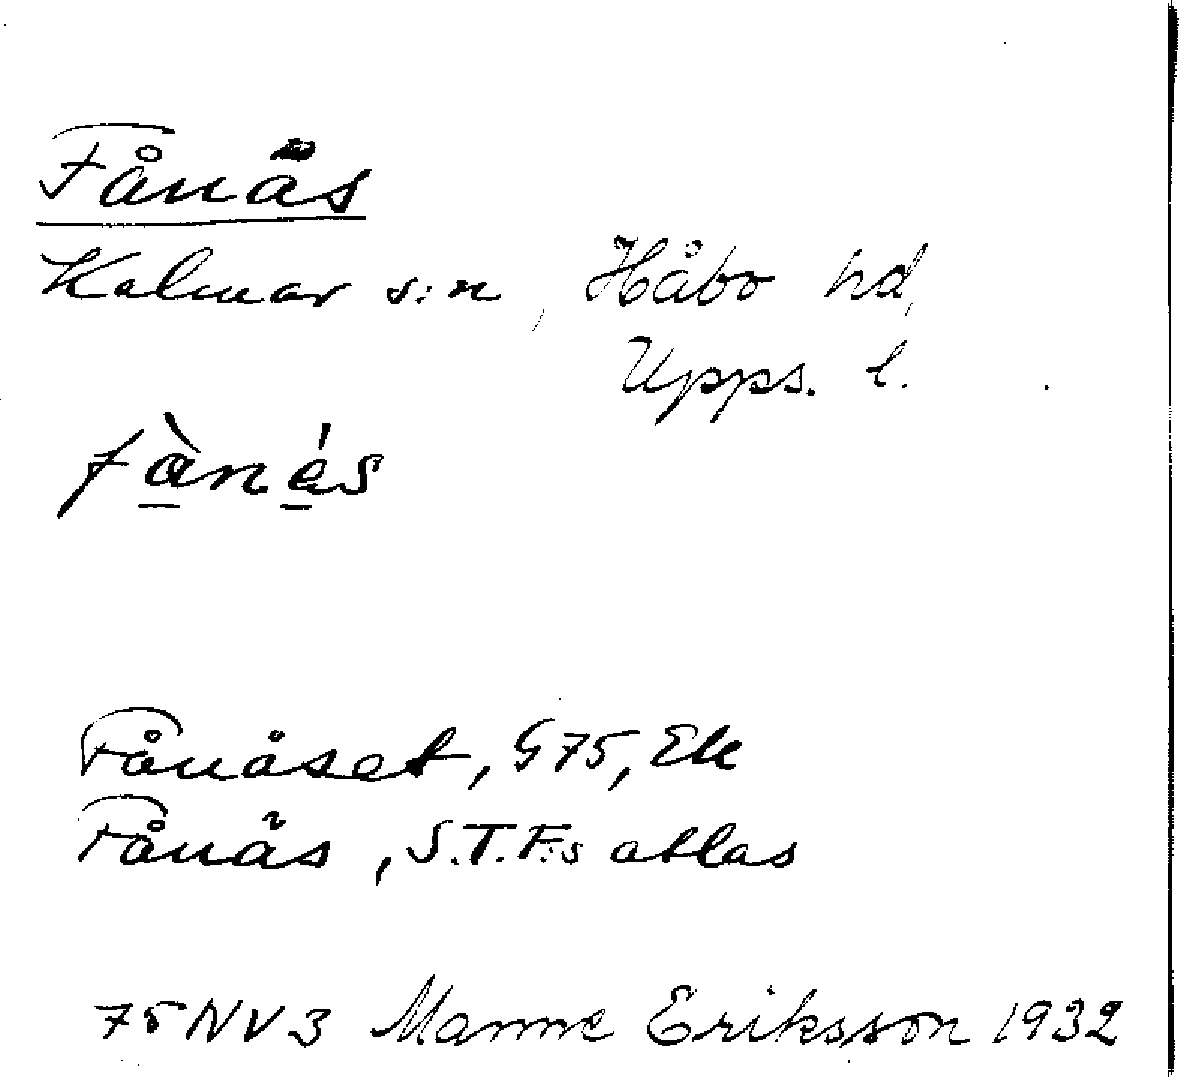 Fånäs
Kalmar s:n, Håbo hd,
Upps. l.
fà̱ná̱s
Fånåset, G75, Ek
Fånäs, S.T.F:s atlas
75 NV 3 Manne Eriksson 1932